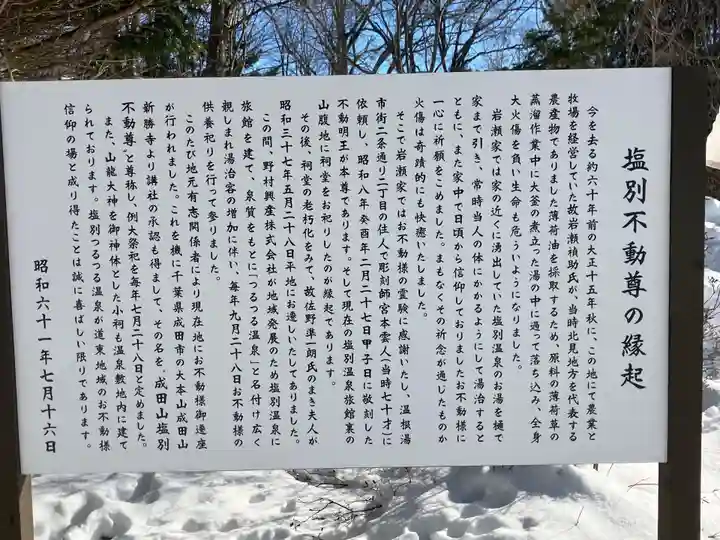 塩別不動尊の縁起
今を去る約六十年前の大正十五年秋に、この地にて農業と
牧場を経営していた故岩瀬槓助氏が、当時北見地方を代表する
農産物でありました薄荷油を採取するため、原料の薄荷草の
蒸溜作業中に大釜の煮立った湯の中に過って落ち込み、全身
大火傷を負い生命も危ういようになりました。
岩瀬家では家の近くに湧出していた塩別温泉のお湯を樋で
家まで引き、常時当人の体にかかるようにして湯治すると
ともに、また家中で日頃から信仰しておりましたお不動様に
一心に祈願をこめました。まもなくその祈念が通じたものか
火傷は奇蹟的にも快癒いたしました。
そこで岩瀬家ではお不動様の霊験に感謝いたし、温根湯
市街二条通り二丁目の住人で彫刻師宮本雲人(当時七十才)に
依頼し、昭和八年癸酉年二月二十七日甲子日に敬刻した
不動明王が本尊であります。そして現在の塩別温泉旅館裏の
山腹地に祠堂をお祀りしたのが縁起であります。
その後、祠堂の老朽化をみて、故佐野準一朗氏のまき夫人が
昭和三十七年五月二十八日平地にお遷しいたしてあります。
この間、野村興産株式会社が地域発展のため塩別温泉に
旅館を建て、泉質をもとに「つるつる温泉」と名付け広く
親しまれ湯治客の増加に伴い、毎年九月二十八日お不動様の
供養祀りを行って参りました。
このたび地元有志関係者により現在地にお不動様御遷座
が行われました。これを機に千葉県成田市の大本山成田山
新勝寺より講社の承認も得まして、その名を、成田山塩別
不動尊、と尊称し、例大祭祀を毎年七月二十八日と定めました。
また、山龍大神を御神体とした小祠も温泉敷地内に建て
られております。塩別つるつる温泉が道東地域のお不動様
信仰の場と成り得たことは誠に喜ばしい限りであります。
昭和六十一年七月十六日